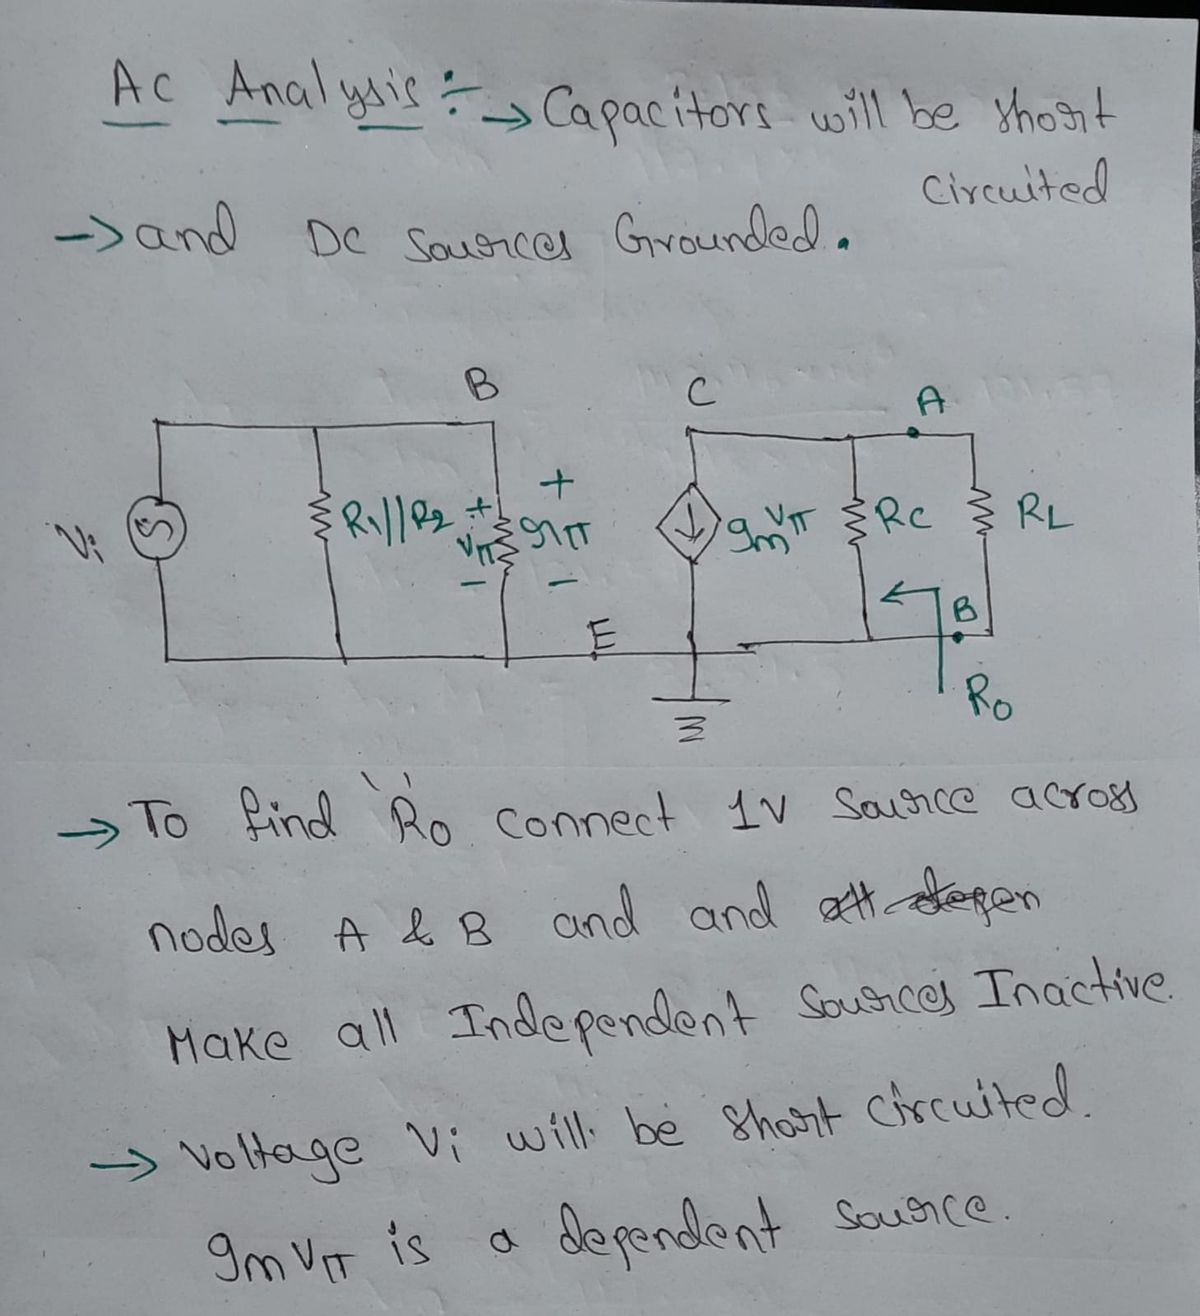 AC Analysis ÷ → Capacitors will be short
circuited
→ and DC Sources Grounded.
B
C
A
+
Vi
R1//R2
+
Vπ
-
rπ
-
gmVπ
RC
RL
B
E
Ro
→ To find 'Ro' connect 1V Source across
nodes A & B and and all depen
Make all Independent Sources Inactive.
→ Voltage Vi will be short circuited.
gmVπ is a dependent source.